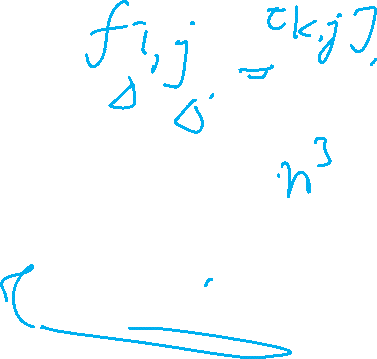 fi,j = [k,j].
n³